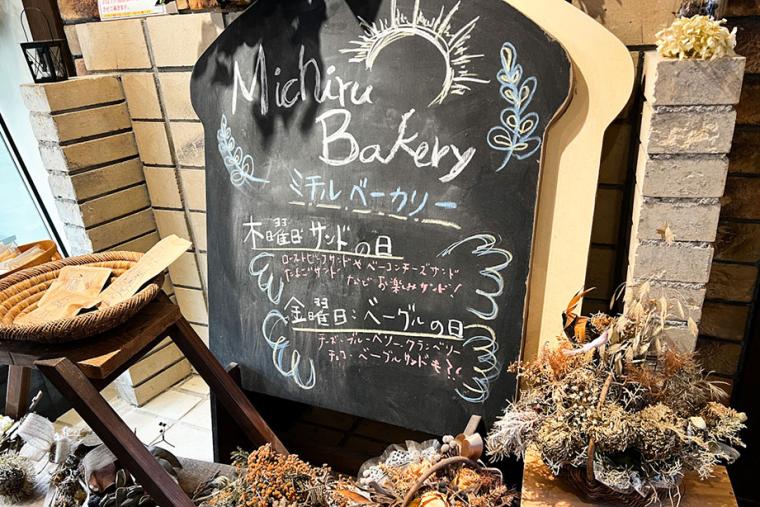 Michiru
Bakery
ミチル ベーカリー
木曜日 サンドの日
ローストビーフサンドや ベーコンチーズサンド
たまごサンド などお楽しみサンド!
金曜日:ベーグルの日
チーズ・ブルーベリー、クランベリー
チョコ・ベーグルサンドも!!